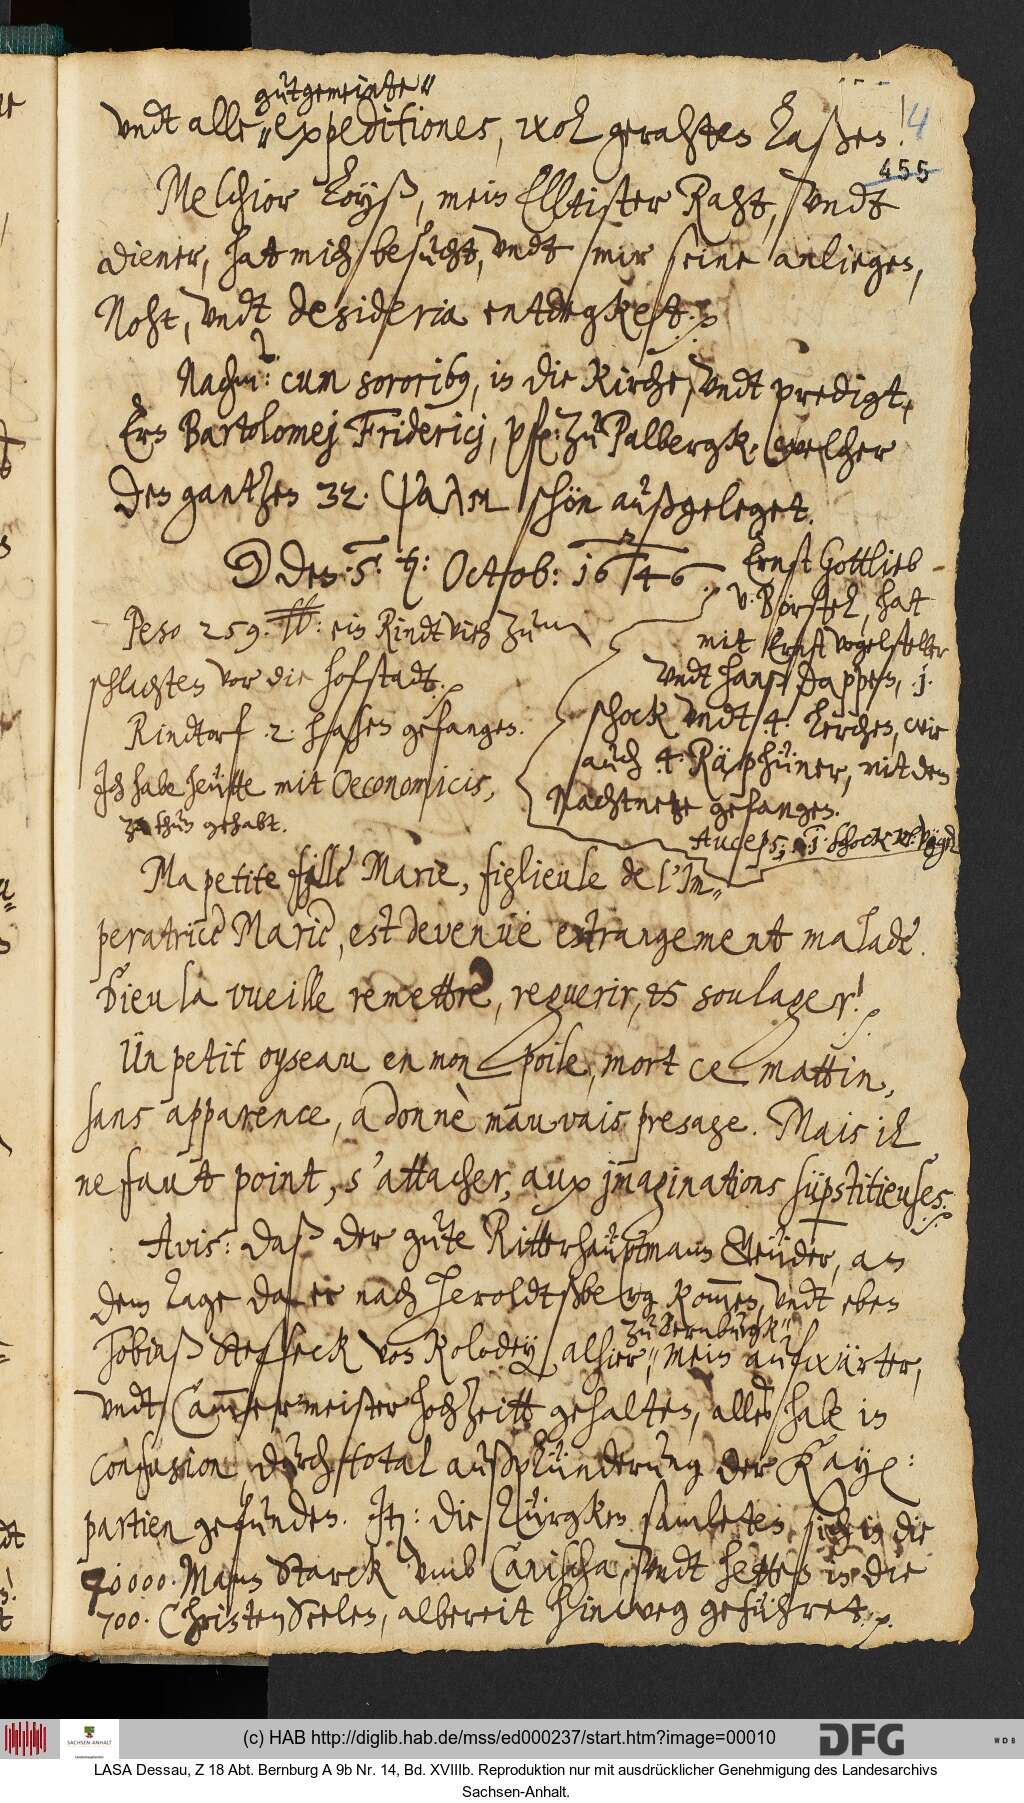 gutgemeinte"
undt alle "expeditiones, wol gerahten laßen!
4
455
Melchior Loyß, mein Elltister Raht, undt
diener, hat mich besucht, undt mir seine anliegen,
Noht, undt desideria entdegket.
Nachm: cum sororib9, in die Kirche, undt predigt,
Ern Bartolomej Friderici, pfr: zu Palbergk. welcher
den gantzen 32. Psalm schön außgeleget.
☽ den: 5. t: Octob: 1646.
Peso 259. ℔: ein Rindtvieh zum
schlachten vor die hofstadt.
Rindtorf .2. hasen gefangen.
Ich habe heütte mit Oeconomicis,
zu thun gehabt.
Ernst Gottlieb
v. Börstel, hat
mit Ernst Vogelsteller
undt hanß Dappen, .j.
schock undt .4. Lerchen, wie
auch .4. Räphüner, mit dem
Nachtnetze gefangen.
Auceps; .j. schock kl. Vögel
Ma petite fille Marie, figlieule de l'Im-
peratrice Marie, est devenuë extrangement malade.
Dieu la vueille remettre, reguerir, et soulager!
Un petit oyseau en mon poile, mort ce mattin,
sans apparence, a donnè mauvais presage. Mais il
ne faut point, s'attacher, aux jmaginations süpstitieuses.
Avis: daß der gute Ritterhauptmann Geüder, an
dem Tage da er nach Heroldtßberg kom̄en, undt eben
zu Bernburgk"
Tobiaß Steffeck von Kolodey alhier, "mein aufwärter,
undt Cam̄ermeister hochzeitt gehalten, alles hab in
confusion, durch total außplünderung der Kay:
partien gefunden. It: die Türgken samleten sich in die
70000. Mann starck umb Canischa, undt hetten in die
700. Christen Seelen, albereit hinweg geführet.
(c) HAB http://diglib.hab.de/mss/ed000237/start.htm?image=00010
SACHSEN-ANHALT
DFG
WDB
LASA Dessau, Z 18 Abt. Bernburg A 9b Nr. 14, Bd. XVIIIb. Reproduktion nur mit ausdrücklicher Genehmigung des Landesarchivs
Sachsen-Anhalt.